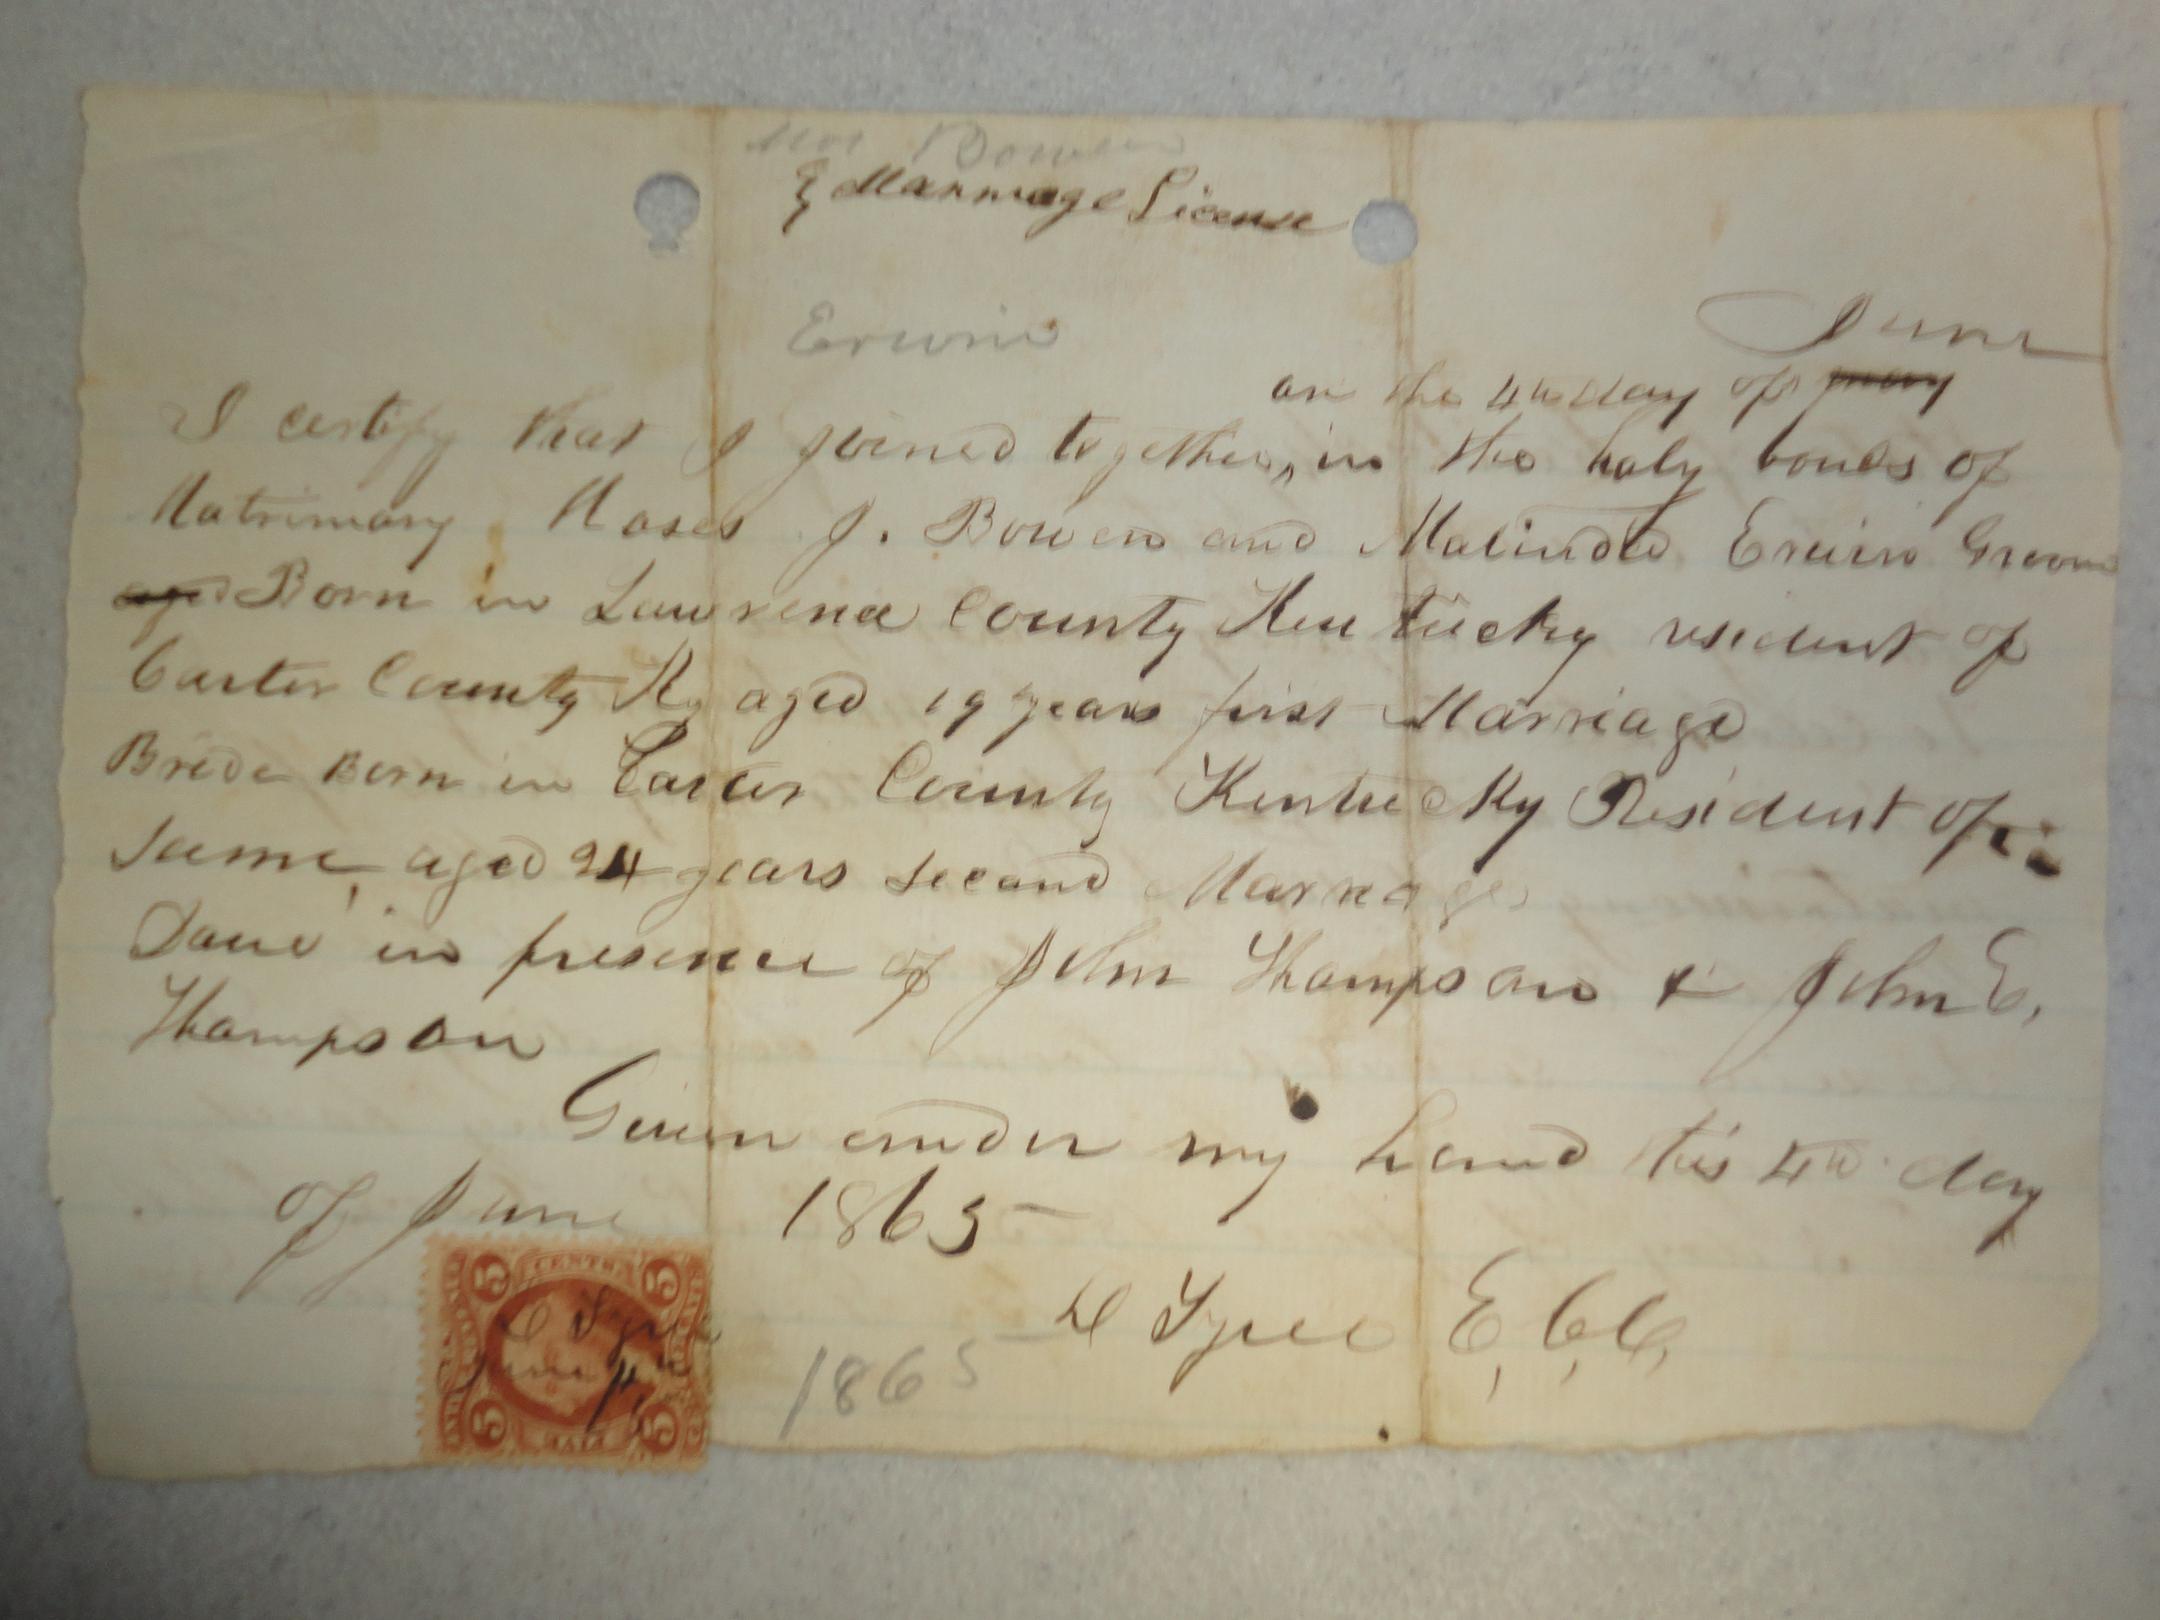 Mos Bowen
& Marriage License
Erwin
June
on the 4th day of may
I certify that I joined together, in the holy bonds of
Matrimony Moses J. Bowen and Malinda Erwin Groom
aged Born in Lawrence County Kentucky resident of
Carter County Ky aged 19 years first Marriage
Bride Born in Carter County Kentucky Resident of
same, aged 24 years second Marriage
Done in presence of John Thompson & John E.
Thompson
Given under my hand this 4th day
of June 1865
D Tyree E, C, C,
1865
5 CENTS 5
D Tyree
June 4th
5 5